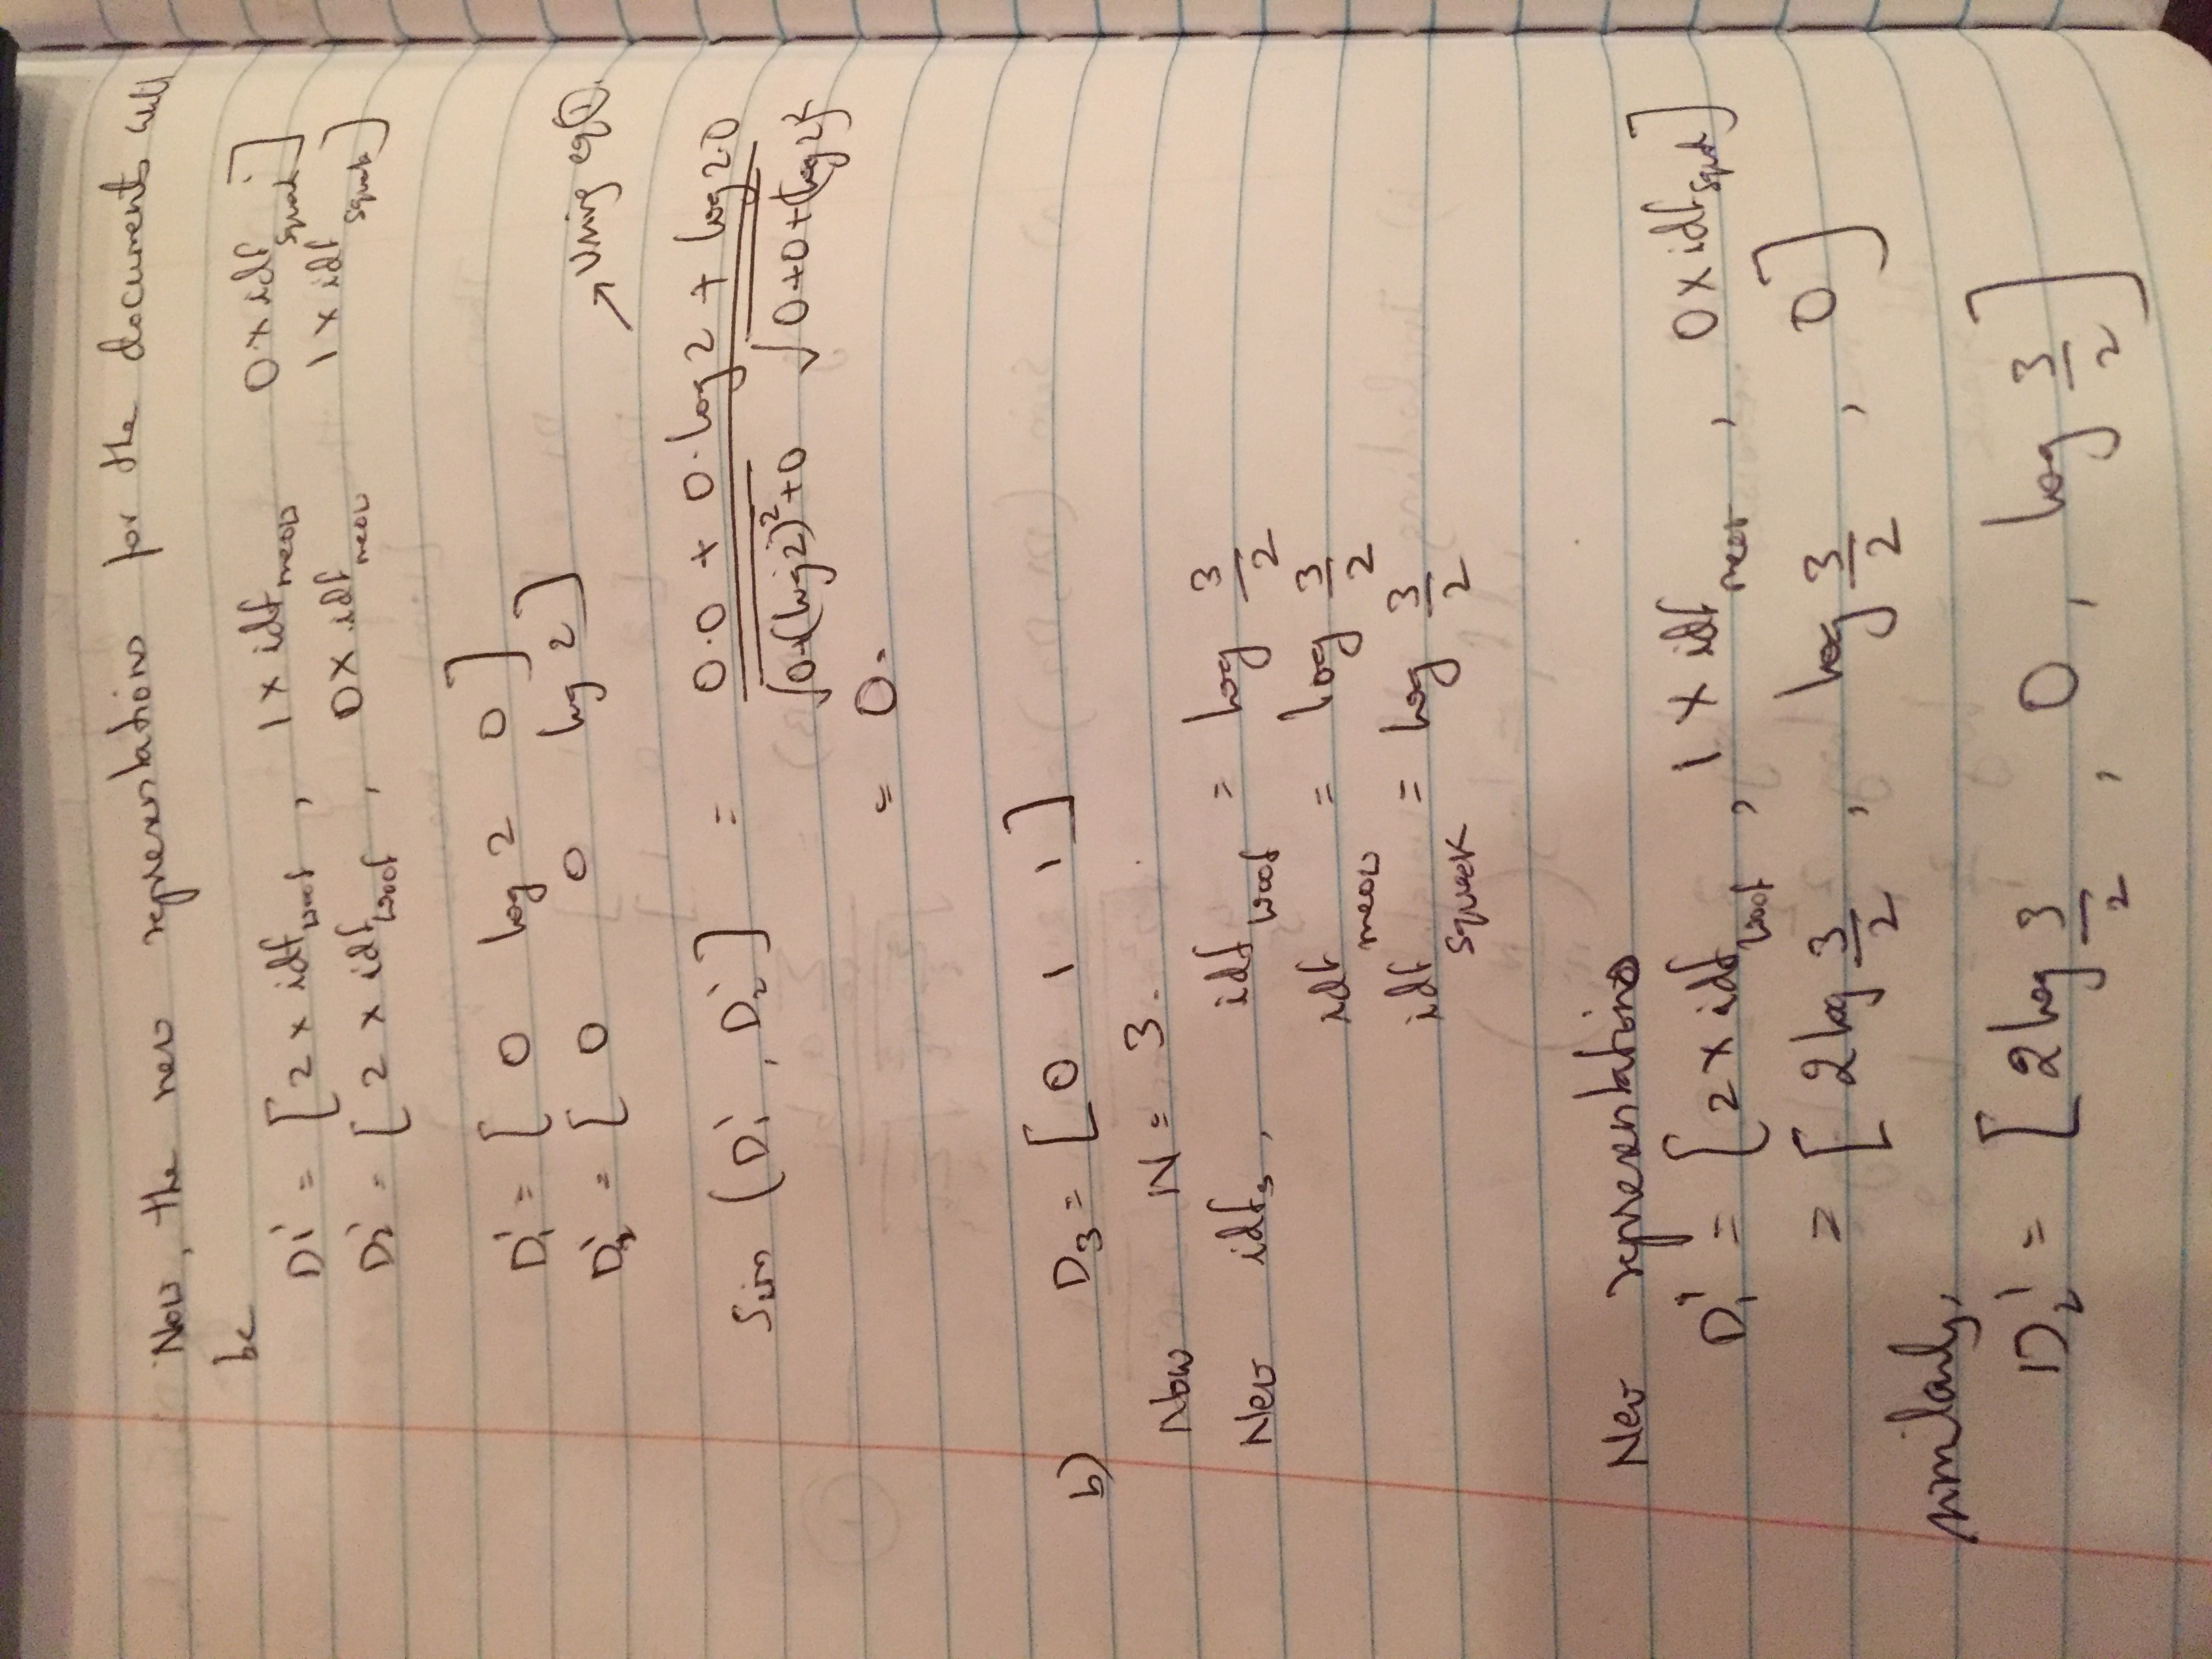 Now, the new representations for the documents will
be
D1' = [ 2 x idf_woof , 1 x idf_meow 0 x idf_squeak ]
D2' = [ 2 x idf_woof , 0 x idf_meow 1 x idf_squeak ]
D1' = [ 0 log 2 0 ]
D2' = [ 0 0 log 2 ]
→ Using eq ①.
Sim (D1', D2'] = 0·0 + 0·log 2 + log 2·0 / √0+(log 2)²+0 √0+0+(log 2)²
= 0.
b) D3 = [ 0 1 1 ]
Now N = 3.
New idfs, idf_woof = log 3/2
idf_meow = log 3/2
idf_squeek = log 3/2
New representations
D1' = [ 2 x idf_woof , 1 x idf_meow , 0 x idf ]
= [ 2 log 3/2 , log 3/2 , 0 ]
similarly,
D2' = [ 2 log 3/2 , 0 , log 3/2 ]